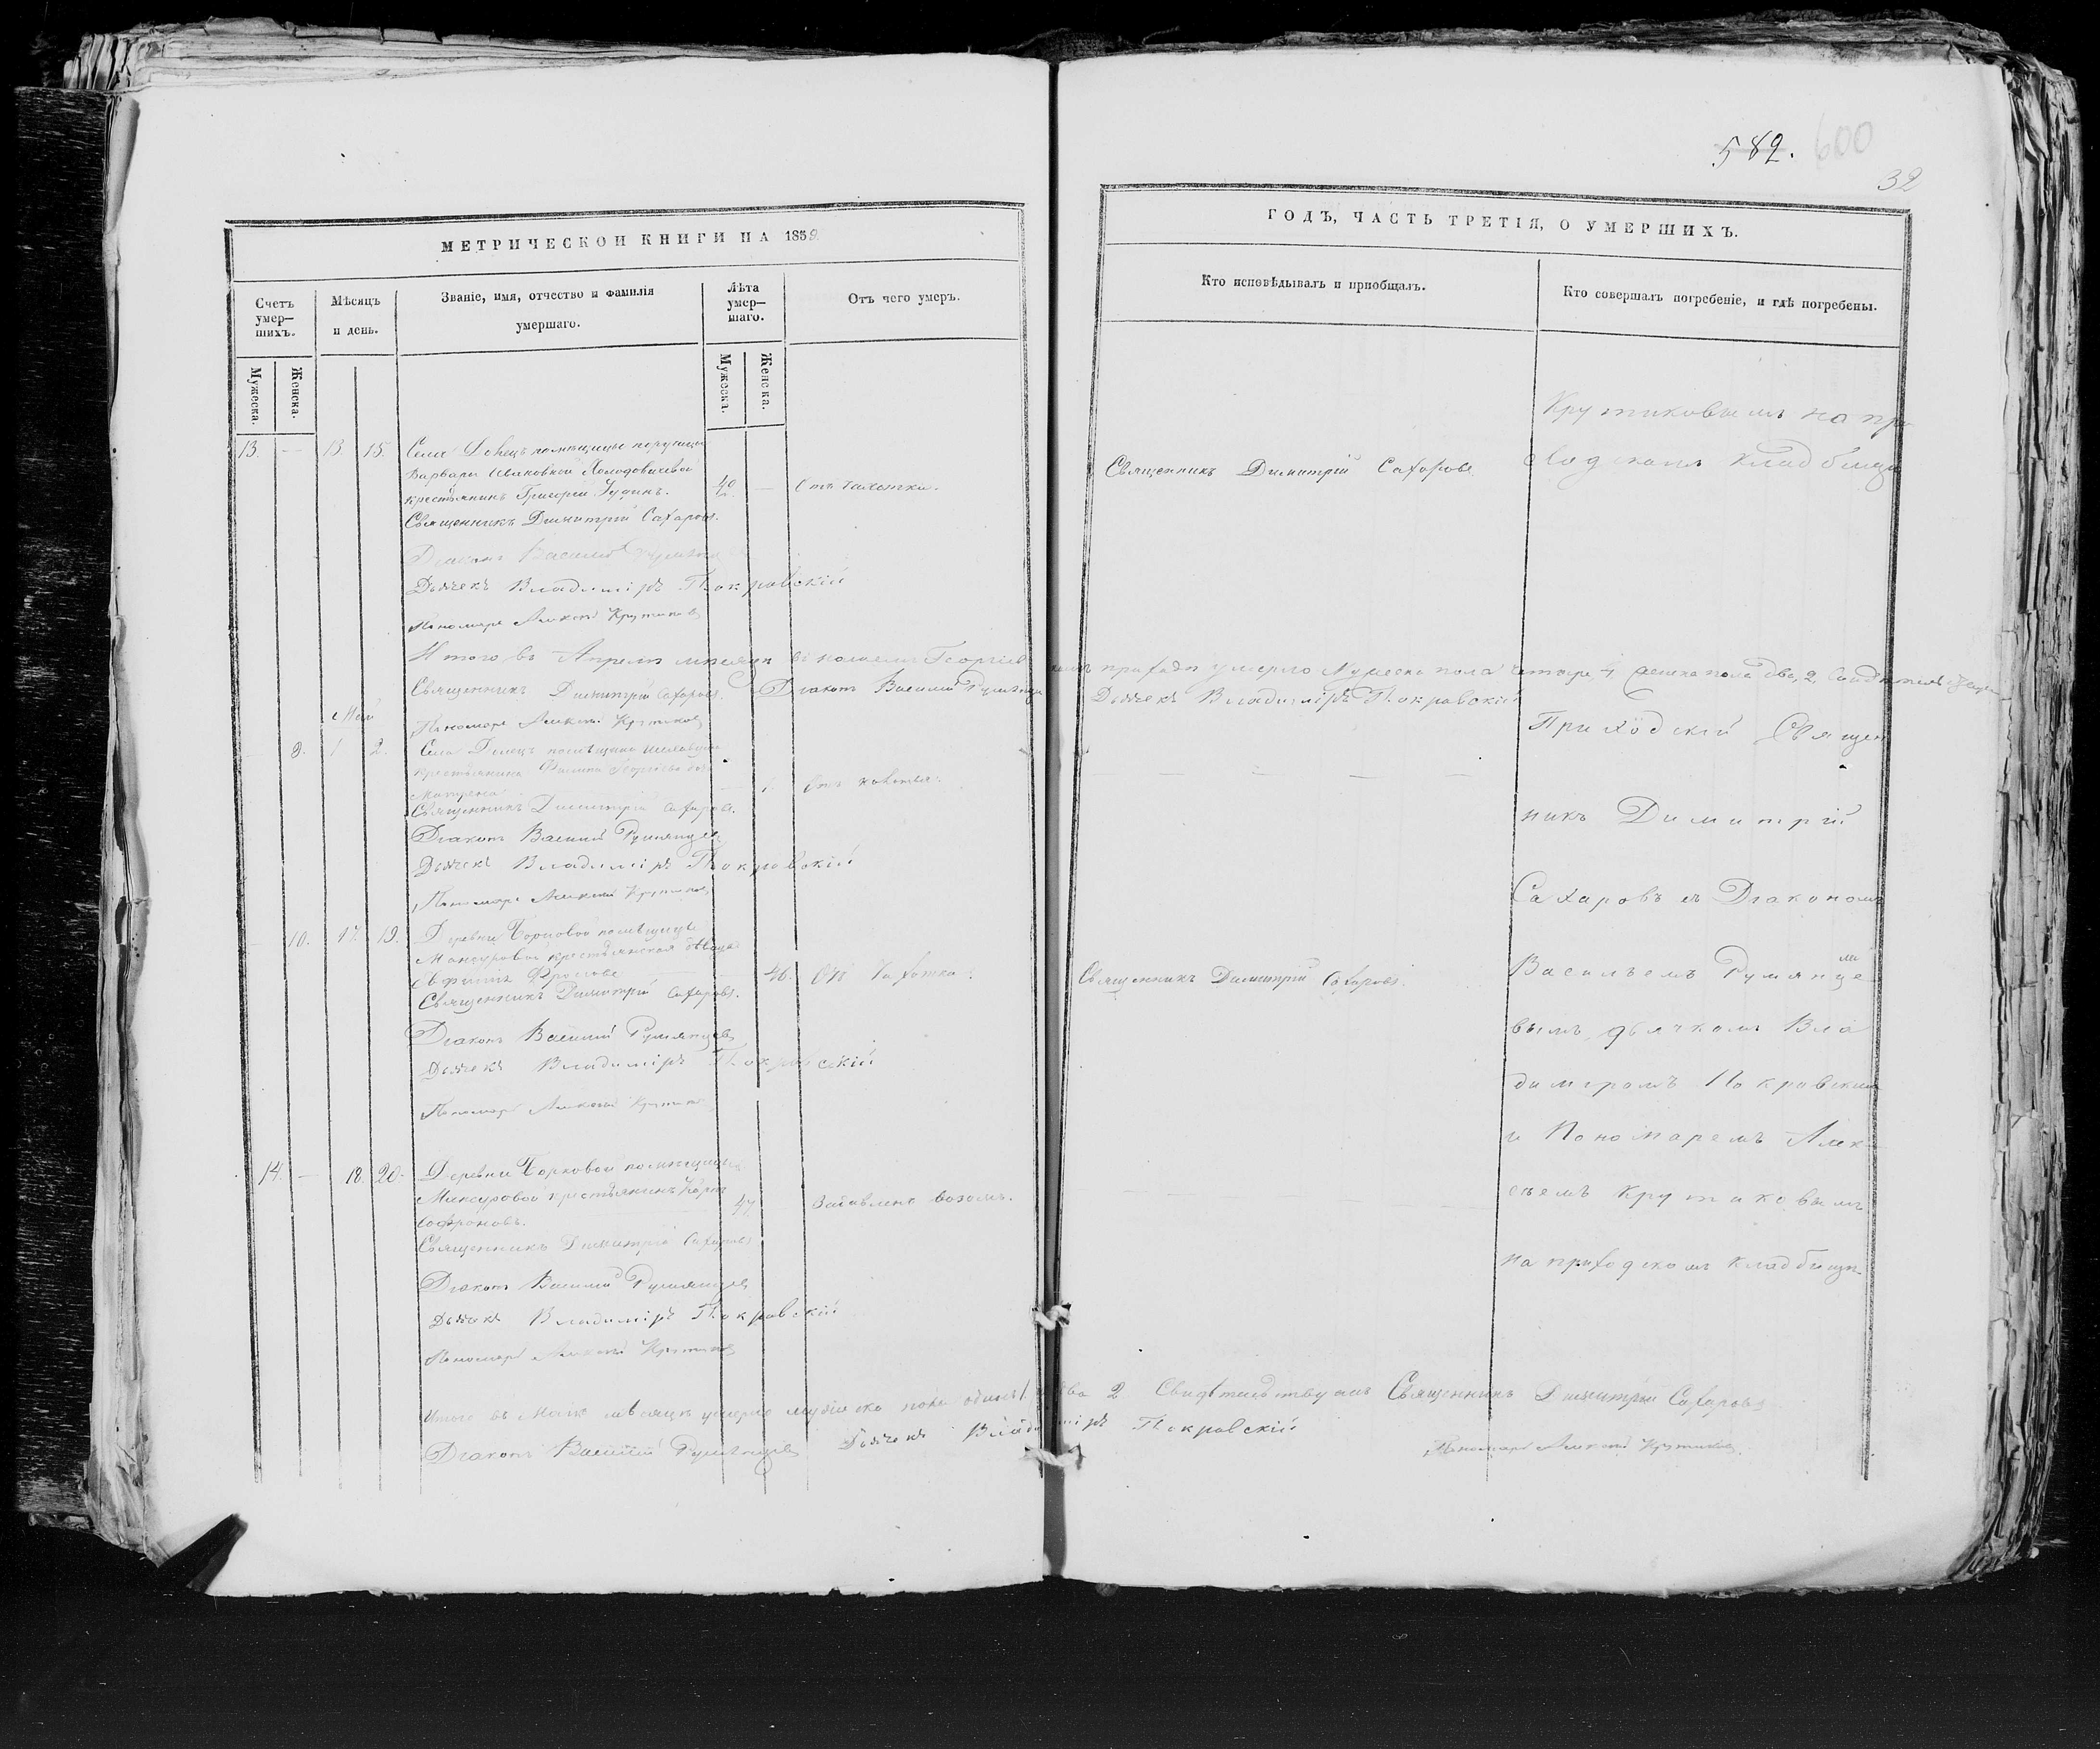 МЕТРИЧЕСКОЙ КНИГИ НА 1859
Счетъ умер-
шихъ.
Мѣсяцъ
и день.
Званіе, имя, отчество и фамилія
умершаго.
Лѣта
умер-
шаго.
Отъ чего умеръ.
Мужеска.
Женска.
Мужеска.
Женска.
13. — 13 15. Села Донецъ помѣщицы
Варвары Ивановной
крестьянинъ Григорій 40 — Отъ чахотки.
Священникъ Димитрій Сахаровъ.
Діаконъ Василій Румянцевъ
Дьячекъ Владиміръ Покровскій
Пономарь Алексѣй Крутиковъ
Итого въ Апрелѣ мѣсяцѣ
Священникъ Димитрій Сахаровъ. Діаконъ Василій Румянцевъ
Май
Пономарь Алексѣй Крутиковъ
9. 1 2. Села Донецъ помѣщика
крестьянина Филипа Георгіева дочь
Матрена 1. Отъ
Священникъ Димитрій Сахаровъ.
Діаконъ Василій Румянцевъ
Дьячекъ Владиміръ Покровскій
Пономарь Алексѣй Крутиковъ
10. 17. 19. Деревни помѣщицы
Мансуровой крестьянская дѣвица
Евфимія Фролова 46. Отъ чахотки.
Священникъ Димитрій Сахаровъ.
Діаконъ Василій Румянцевъ
Дьячекъ Владиміръ Покровскій
Пономарь Алексѣй Крутиковъ
14. — 18. 20. Деревни помѣщицы
Мансуровой крестьянинъ
Софроновъ. 47 Задавленъ возомъ.
Священникъ Димитрій Сахаровъ
Діаконъ Василій Румянцевъ
Дьячекъ Владиміръ Покровскій
Пономарь Алексѣй Крутиковъ
Итого въ Маѣ мѣсяцѣ умерло мужеска пола одинъ 1
Діаконъ Василій Румянцевъ Дьячекъ Владиміръ Покровскій
582. 600
32
ГОДЪ, ЧАСТЬ ТРЕТІЯ, О УМЕРШИХЪ.
Кто исповѣдывалъ и пріобщалъ.
Кто совершалъ погребеніе, и гдѣ погребены.
Крутиковымъ на при
Священникъ Димитрій Сахаровъ
ходскомъ кладбищѣ
приходѣ умерло Мужеска пола четыре 4 Женска пола два, 2,
Дьячекъ Владиміръ Покровскій
Приходскій Священ
никъ Димитрій
Сахаровъ съ Діакономъ
Священникъ Димитрій Сахаровъ.
Васильемъ Румянце
вымъ, дьячкомъ Вла
диміромъ Покровскимъ
и Пономаремъ Алек
сѣемъ Крутиковымъ
на приходскомъ кладбищѣ
два 2 Свидѣтельствуемъ Священникъ Димитрій Сахаровъ
Пономарь Алексѣй Крутиковъ.